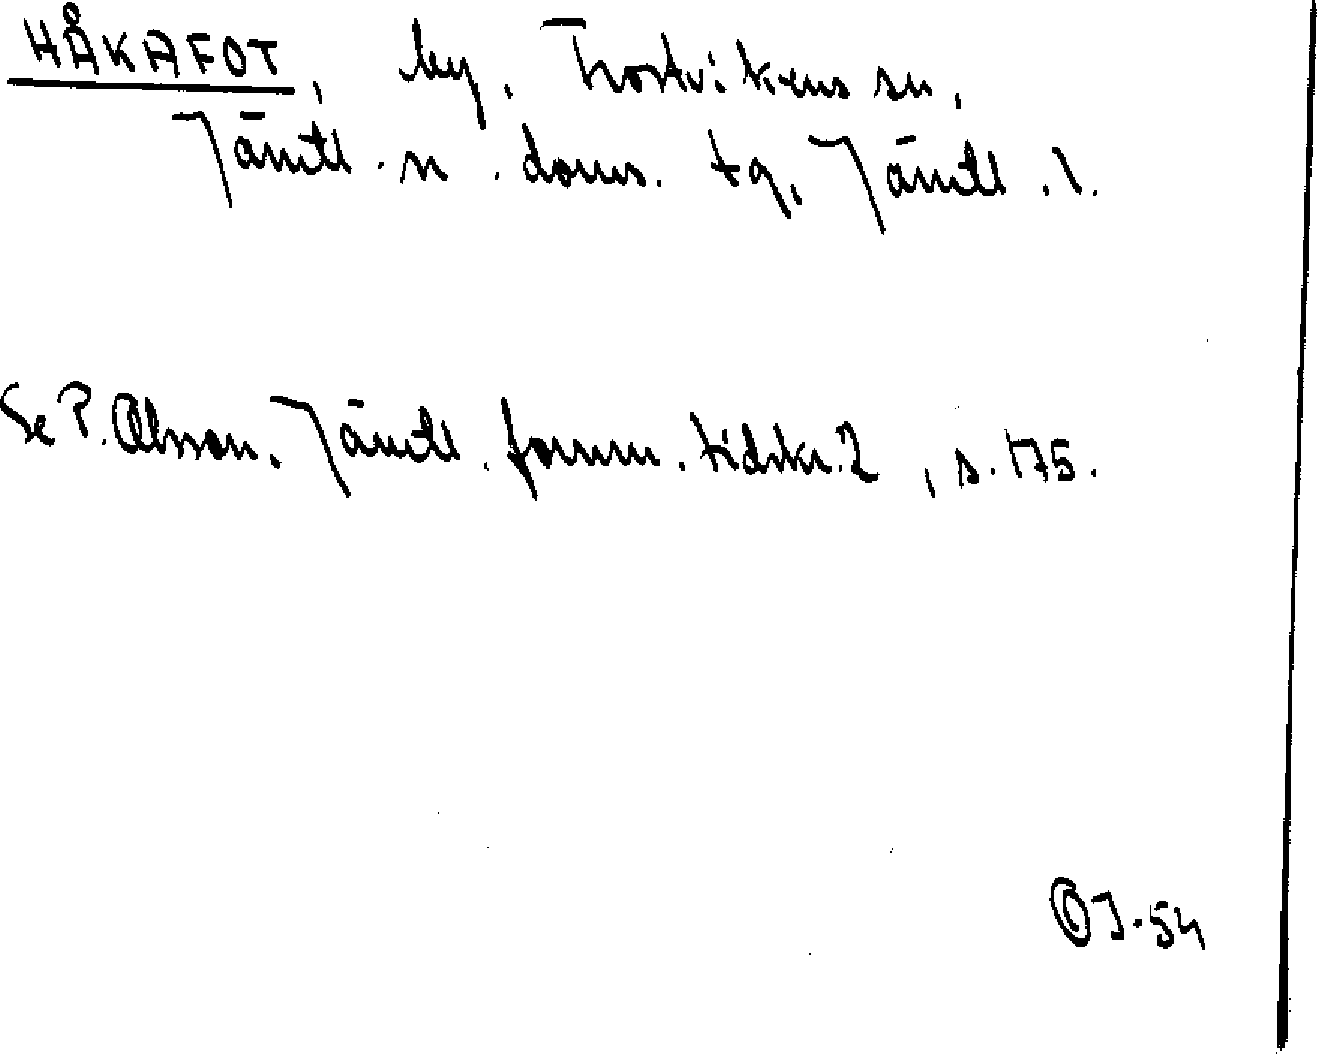 HÅKAFOT, by, Frostvikens sn,
Jämtl. n. doms. tg, Jämtl. l.
Se P. Olsson, Jämtl. fornm. tidskr. 2, s. 175.
OJ-54